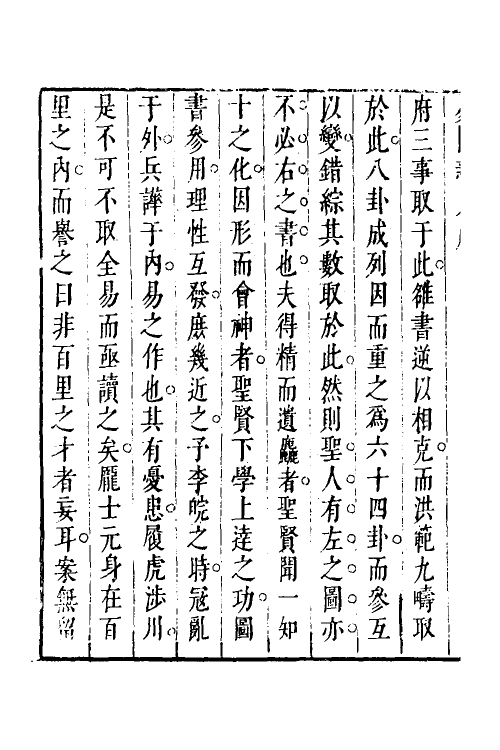 府三事取于此。雒書逆以相克。而洪範九疇取
於此。八卦成列因而重之爲六十四卦。而參互
以變。錯綜其數取於此。然則聖人有左之圖亦
不必右之書也。夫得精而遺麤者。聖賢聞一知
十之化。因形而會神者。聖賢下學上達之功。圖
書參用。理性互發。庶幾近之。予李皖之時。冦亂
于外。兵譁于内。易之作也。其有憂患。履虎涉川。
是不可不取全易而亟讀之矣。龐士元身在百
里之内。而譽之曰非百里之才者妄耳。案無留